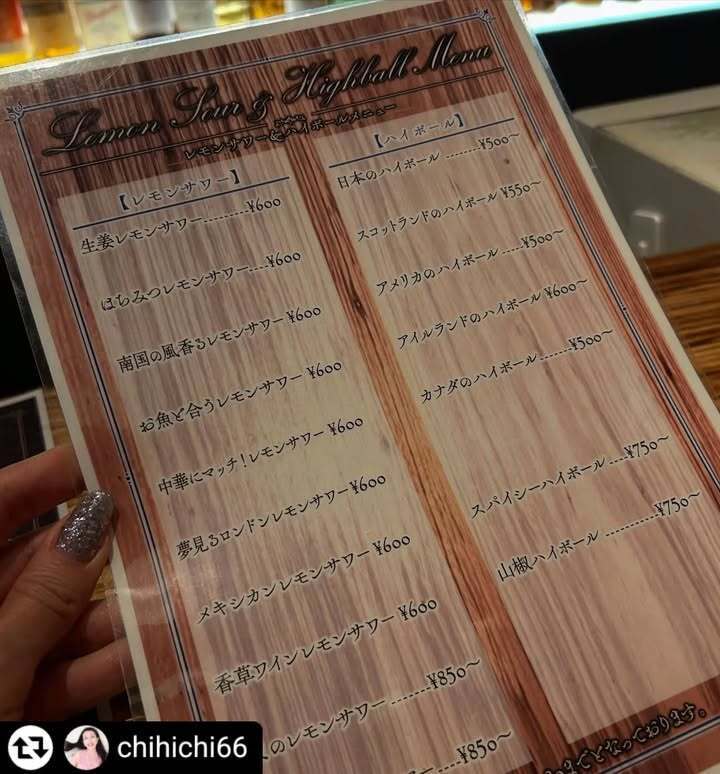 Lemon Sour & Highball Menu
レモンサワー&ハイボールメニュー
【レモンサワー】
生姜レモンサワー.........¥600
はちみつレモンサワー....¥600
南国の風香るレモンサワー ¥600
お魚と合うレモンサワー ¥600
中華にマッチ!レモンサワー ¥600
夢見るロンドンレモンサワー ¥600
メキシカンレモンサワー ¥600
香草ワインレモンサワー ¥600
のレモンサワー .......¥850〜
ワー ....¥850〜
【ハイボール】
日本のハイボール ........¥500〜
スコットランドのハイボール ¥550〜
アメリカのハイボール .....¥500〜
アイルランドのハイボール ¥600〜
カナダのハイボール .......¥500〜
スパイシーハイボール ....¥750〜
山椒ハイボール ...........¥750〜
までとなっております。
chihichi66